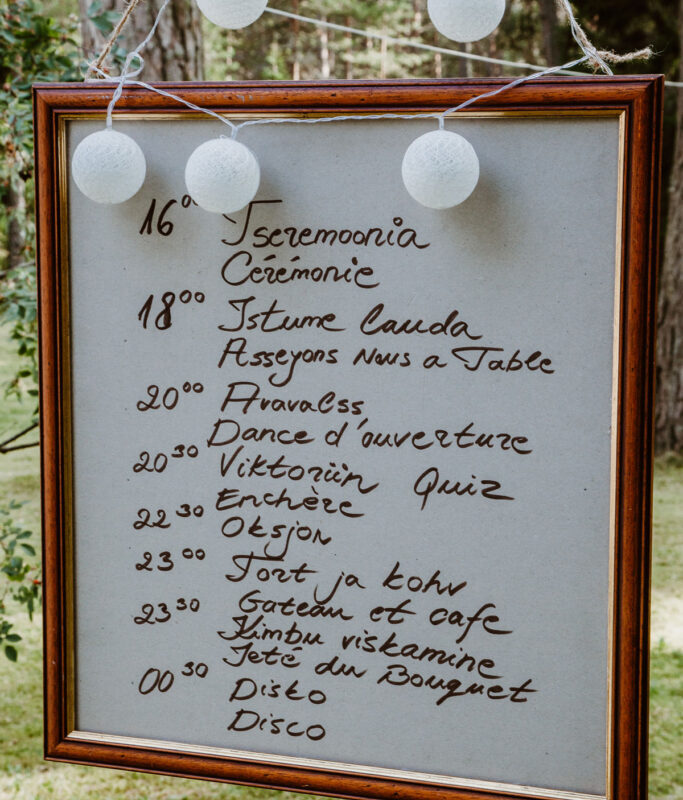 16⁰⁰ Tseremoonia
Cérémonie
18⁰⁰ Istume lauda
Asseyons nous a Table
20⁰⁰ Avavalss
Dance d'ouverture
20³⁰ Viktoriin Quiz
Enchère
22³⁰ Oksjon
23⁰⁰ Tort ja kohv
Gateau et cafe
23³⁰ Kimbu viskamine
Jeté du Bouquet
00³⁰ Disko
Disco